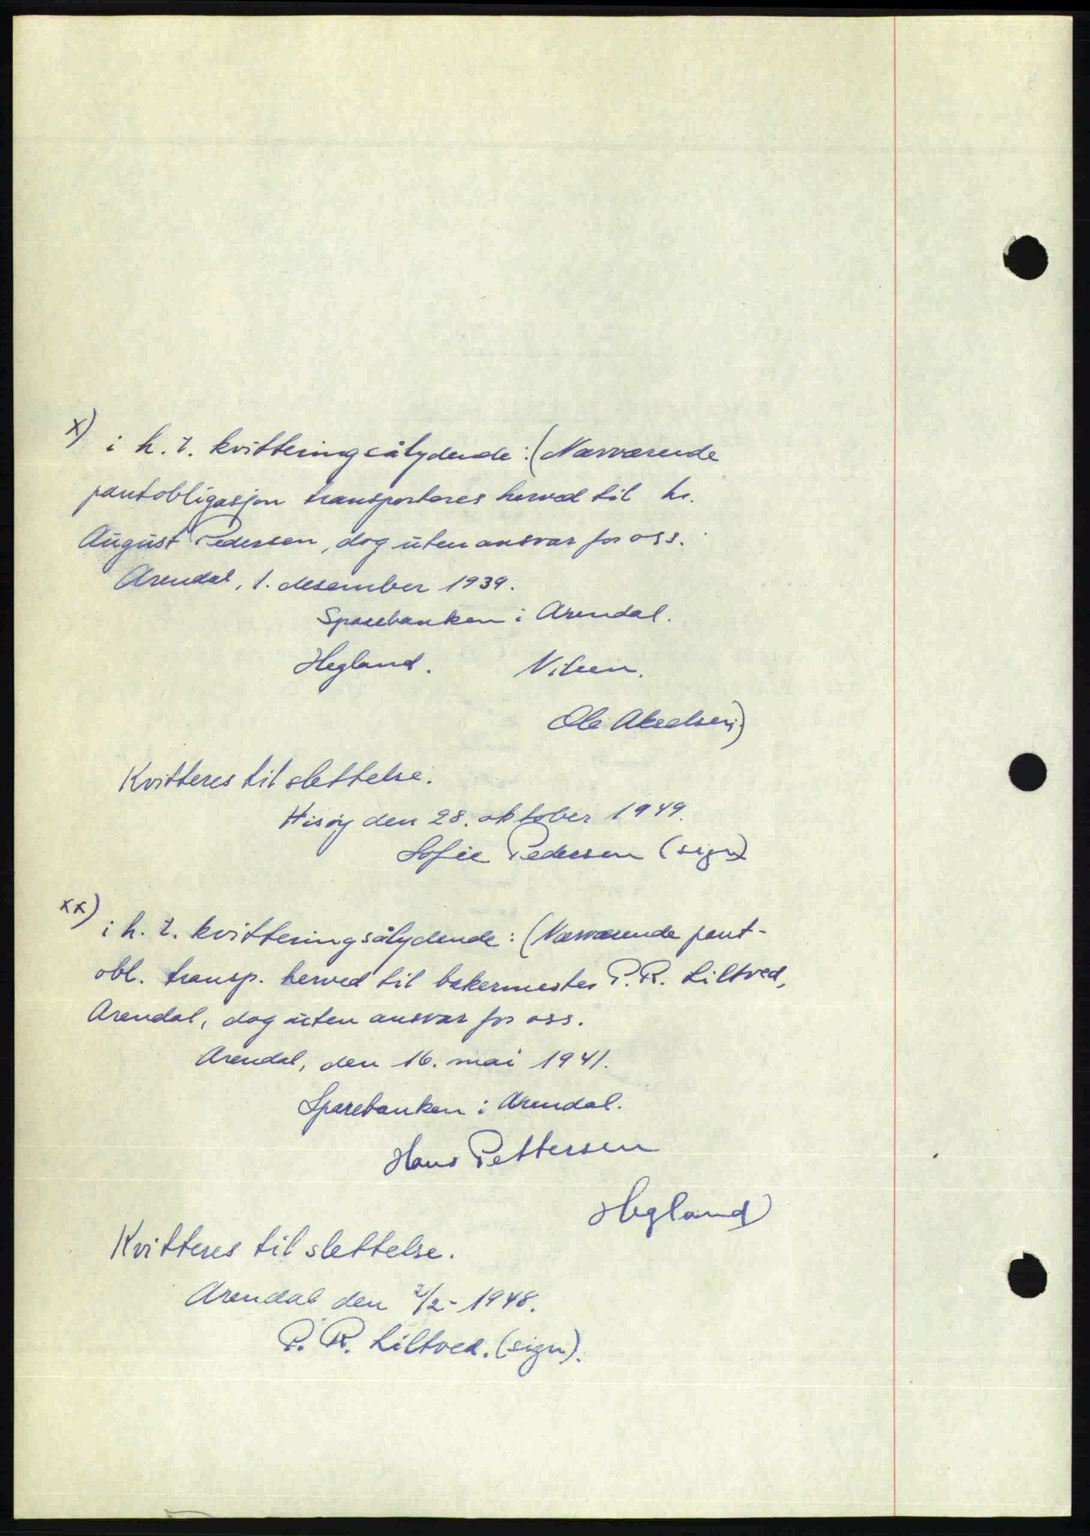 x) i h. t. kvittering sålydende: (Nærværende
pantobligasjon transporteres herved til hr.
August Pedersen, dog uten ansvar for oss.
Arendal, 1. desember 1939.
Sparebanken i Arendal.
Hegland. Nilsen.
Ole Akselsen.)
Kvitteres til slettelse.
Hisøy den 28. oktober 1949.
Sofie Pedersen (sign)
xx) i h. t. kvittering sålydende: (Nærværende pant-
obl. transp. herved til bakermester P. R. Liltved,
Arendal, dog uten ansvar for oss.
Arendal, den 16. mai 1941.
Sparebanken i Arendal.
Hans Pettersen
Hegland)
Kvitteres til slettelse.
Arendal den 2/2-1948.
P. R. Liltved. (sign).